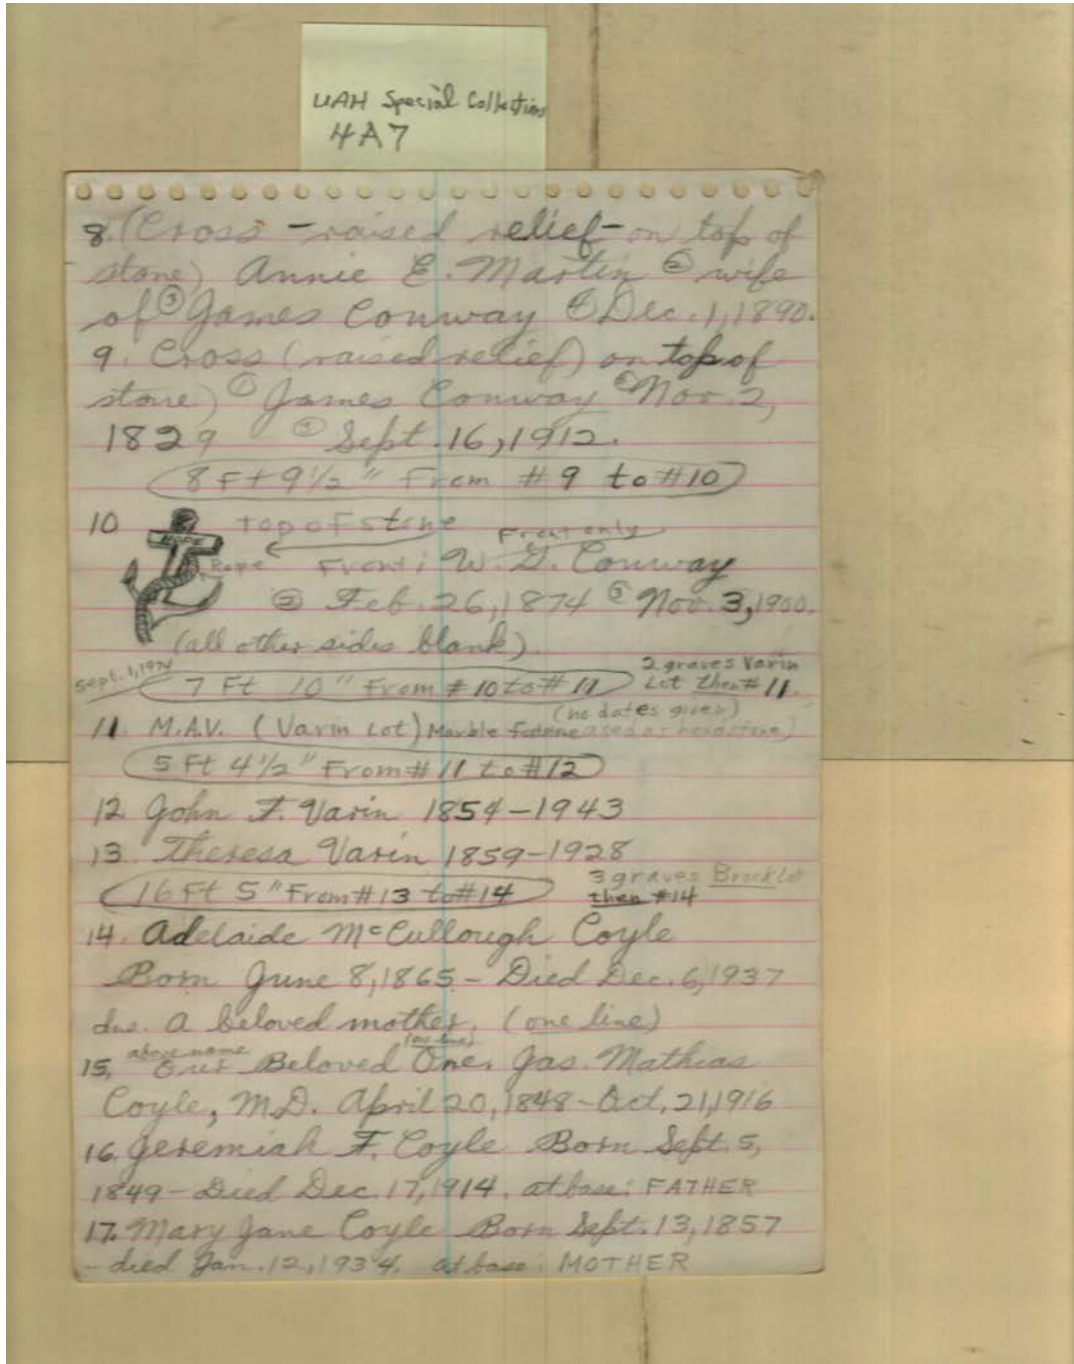 UAH Special Collections
4A7
8. (Cross - raised relief - on top of
stone) Annie E. Martin ② wife
of ③ James Conway ④ Dec. 1, 1890.
9. Cross (raised relief) on top of
stone) ① James Conway ② Nov. 2,
1829 ③ Sept. 16, 1912.
8 Ft 9 1/2" From #9 to #10
10 Top of stone
Front only
Rope Front: W. D. Conway
② Feb. 26, 1874 ③ Nov. 3, 1900.
(all other sides blank)
Sept. 1, 1974 7 Ft 10" From #10 to #11 2 graves Varin
Lot then #11.
(no dates given)
11. M.A.V. (Varin Lot) Marble used as headstone)
5 Ft 4 1/2" From #11 to #12
12. John F. Varin 1854-1943
13. Theresa Varin 1859-1928
16 Ft 5" From #13 to #14 3 graves Brock Lot
then #14
14. Adelaide McCullough Coyle
Born June 8, 1865 - Died Dec. 6, 1937
A beloved mother. (one line)
above name (one line)
15. Our Beloved One. Jas. Mathias
Coyle, M.D. April 20, 1848 - Oct. 21, 1916
16. Jeremiah F. Coyle Born Sept. 5,
1849 - Died Dec. 17, 1914. at base: FATHER
17. Mary Jane Coyle Born Sept. 13, 1857
- died Jan. 12, 1934. at base: MOTHER